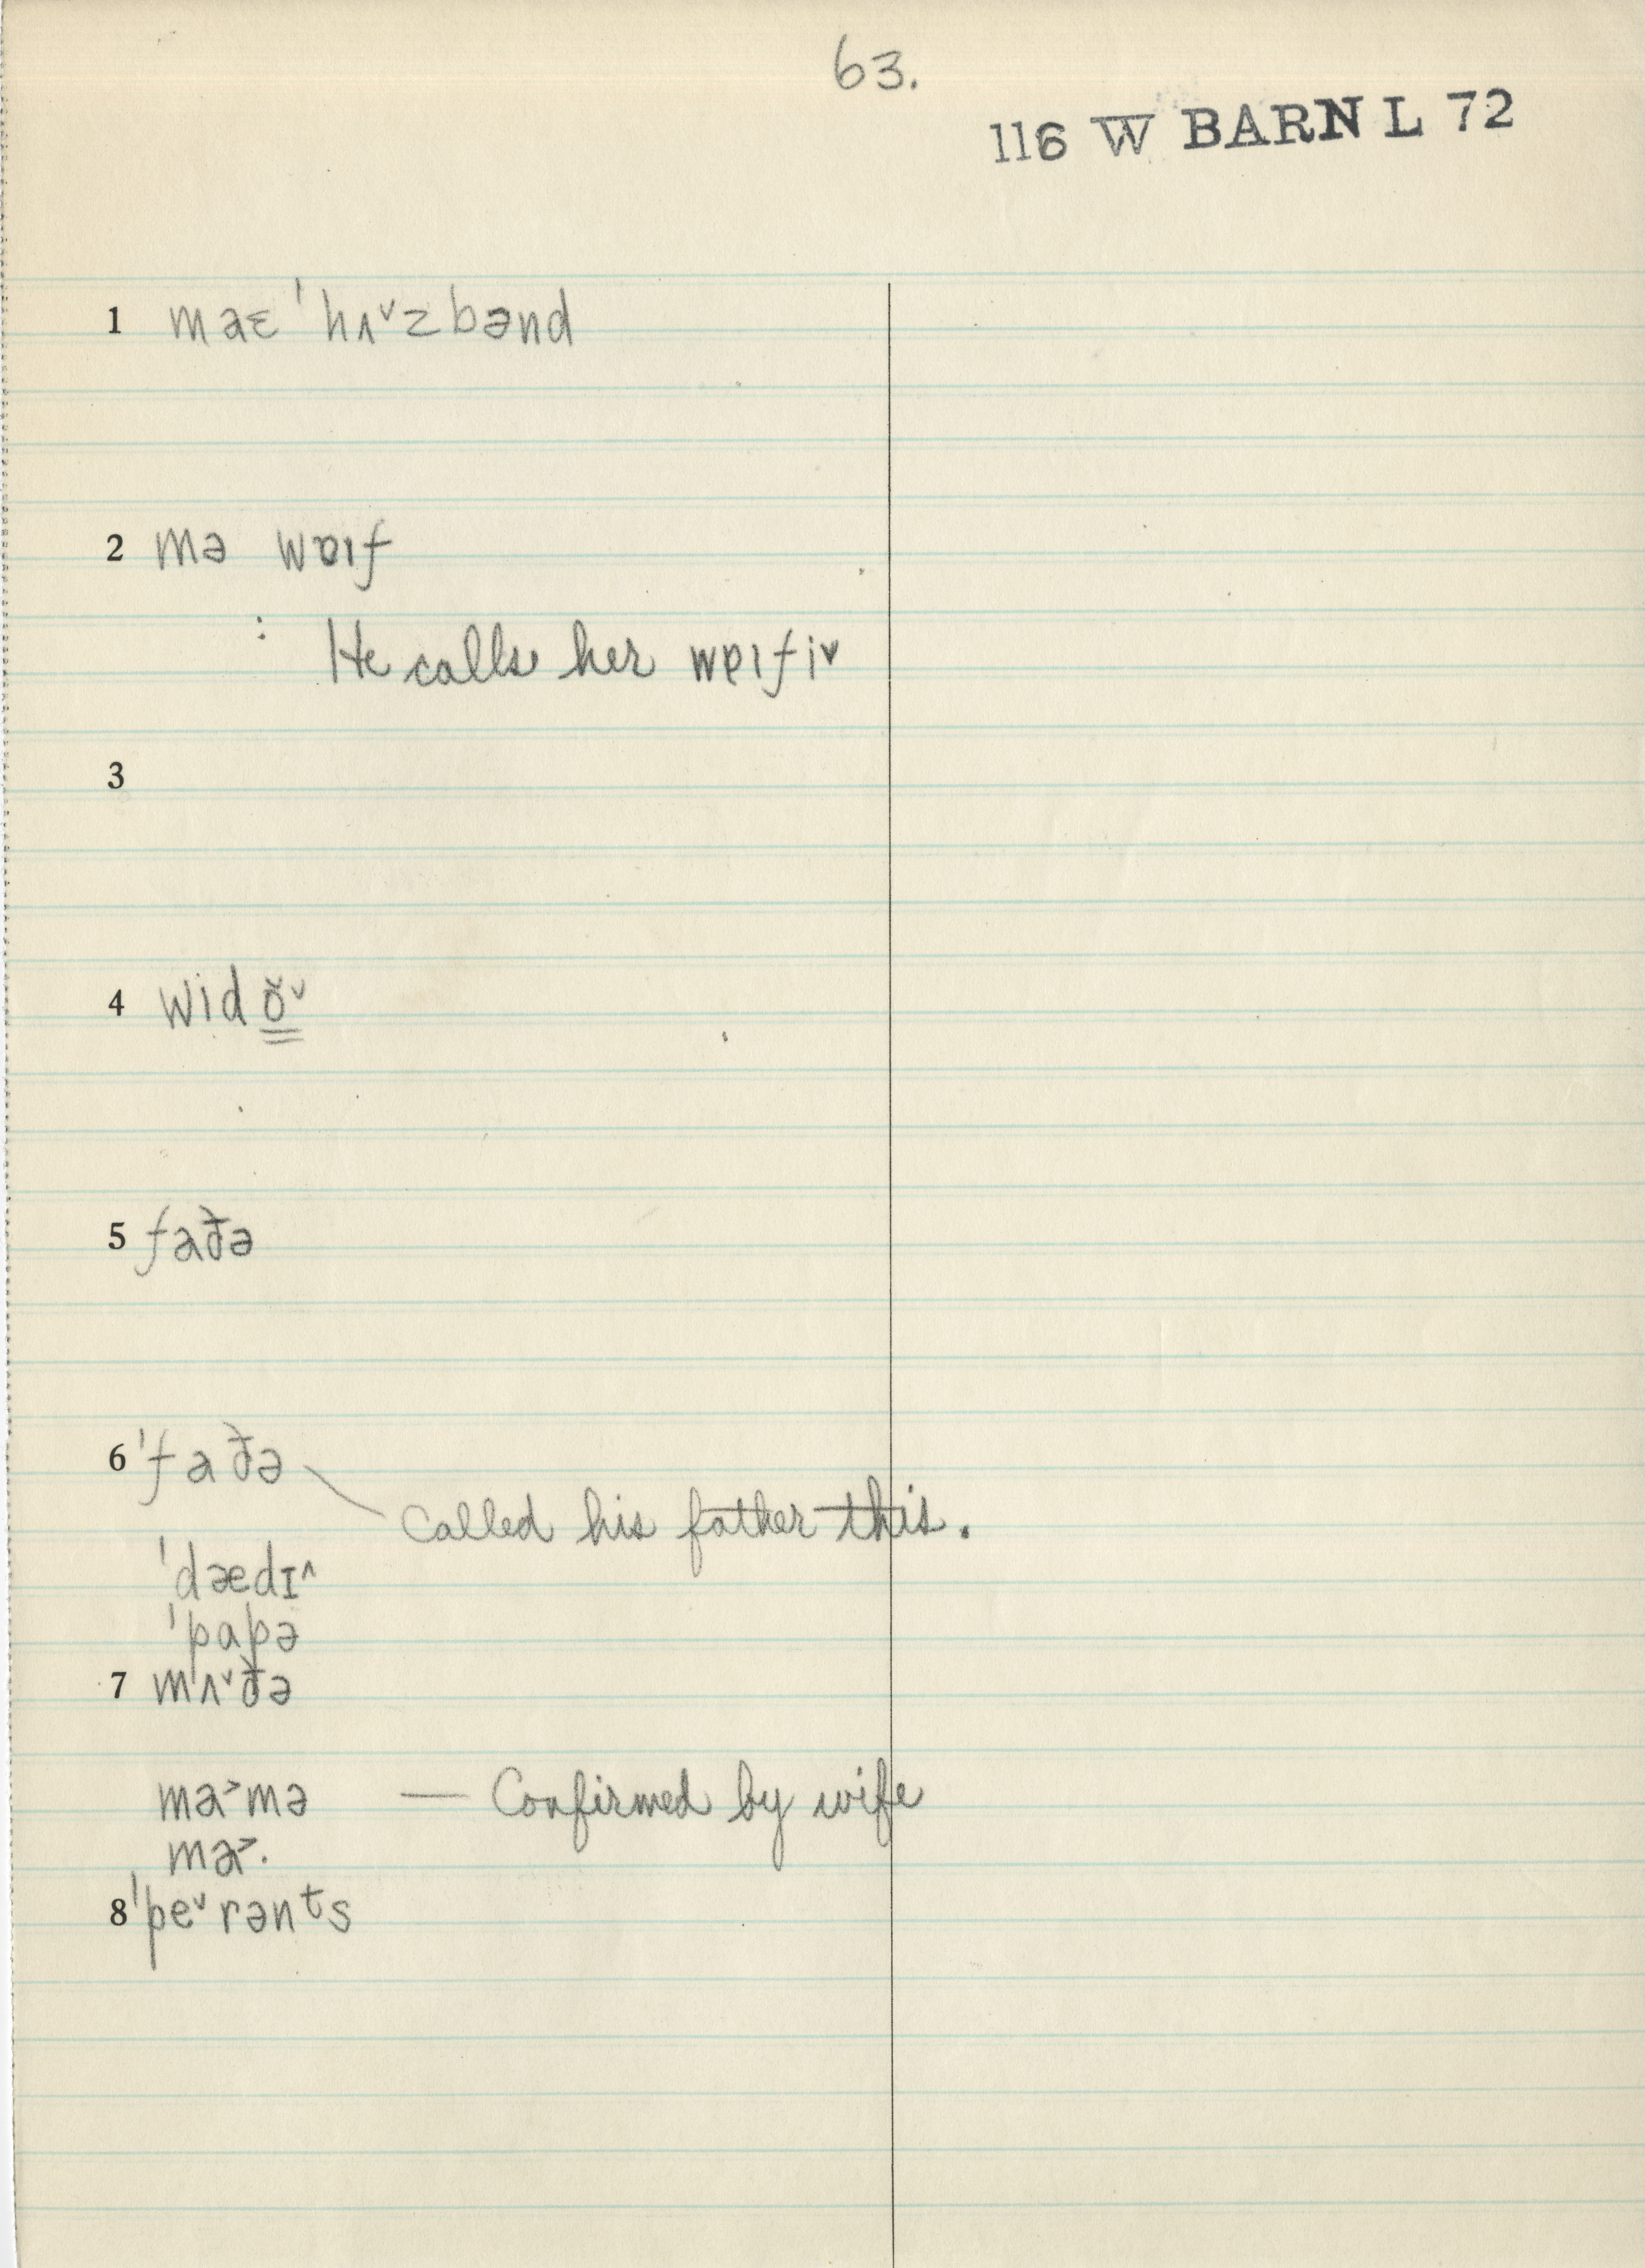 63.
116 W BARN L 72
1 maɛ ˈhʌ˅zbənd
2 mə wɐıf
: He calls her wɐıfi˅
3
4 widŏ̳˅
5 faðə
6 ˈfaðə
called his father this.
ˈdædɪ^
ˈpapə
7 mʌ˅ðə
ma˃mə — Confirmed by wife
ma˃·
8 ˈpe˅rənᵗs